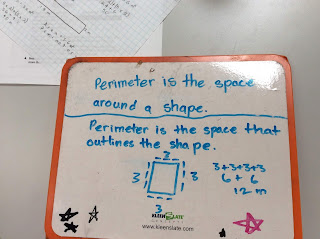 Perimeter is the space
around a shape.
Perimeter is the space that
outlines the shape.
3
3
3
3
3+3+3+3
6 + 6
12 m
KLEENSLATE
www.kleenslate.com